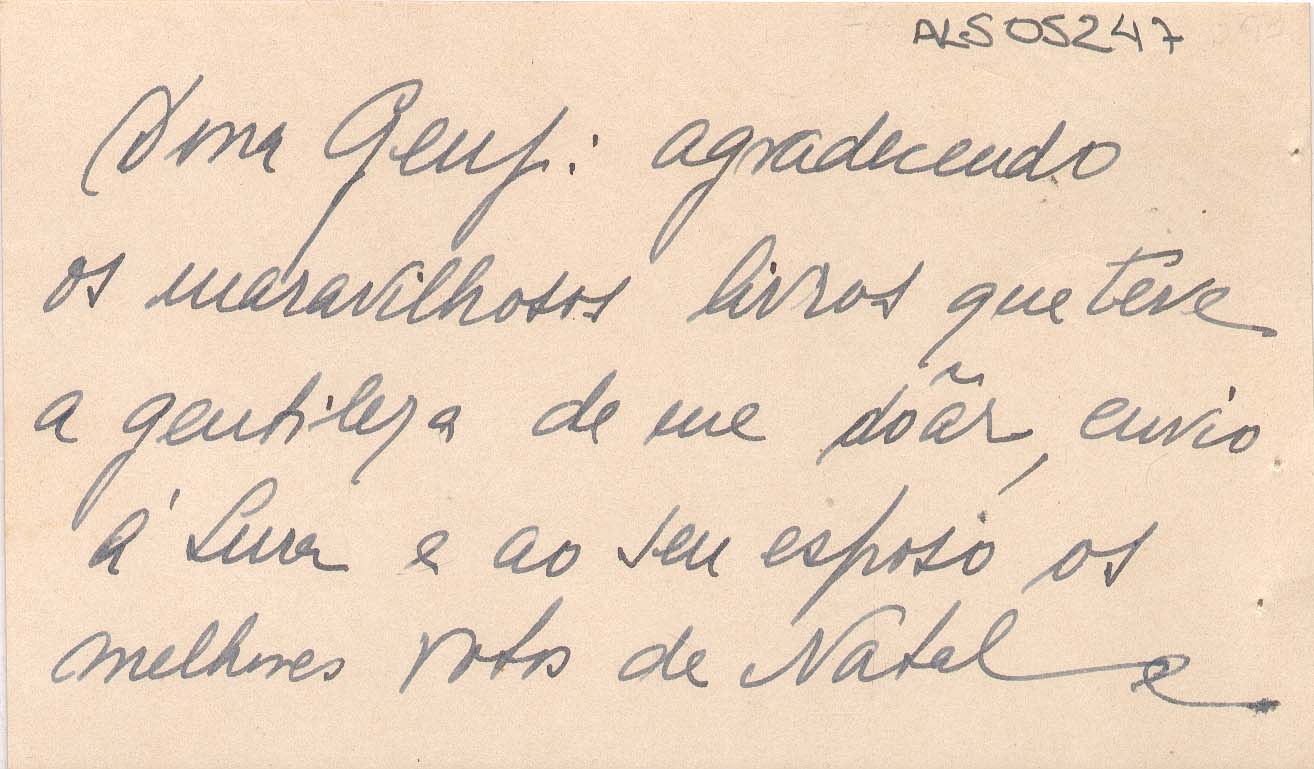 ALS05247
Dona Geny: agradecendo
os maravilhosos livros que teve
a gentileza de me doãr, envio
á Sura e ao seu esposo os
melhores votos de Natal e